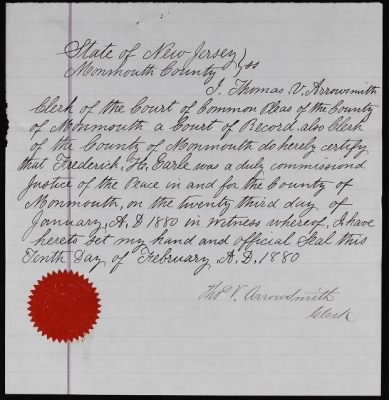 State of New Jersey }
Monmouth County } ss
I, Thomas V. Arrowsmith
Clerk of the Court of Common Pleas of the County
of Monmouth a Court of Record, also Clerk
of the County of Monmouth do hereby certify
that Frederick, H, Earle was a duly commissiond
Justice of the Peace in and for the County of
Monmouth, on the twenty third day of
January, A. D 1880 in witness whereof, I have
hereto set my hand and official Seal this
Tenth Day of February A. D. 1880
Tho V. Arrowsmith
Clerk